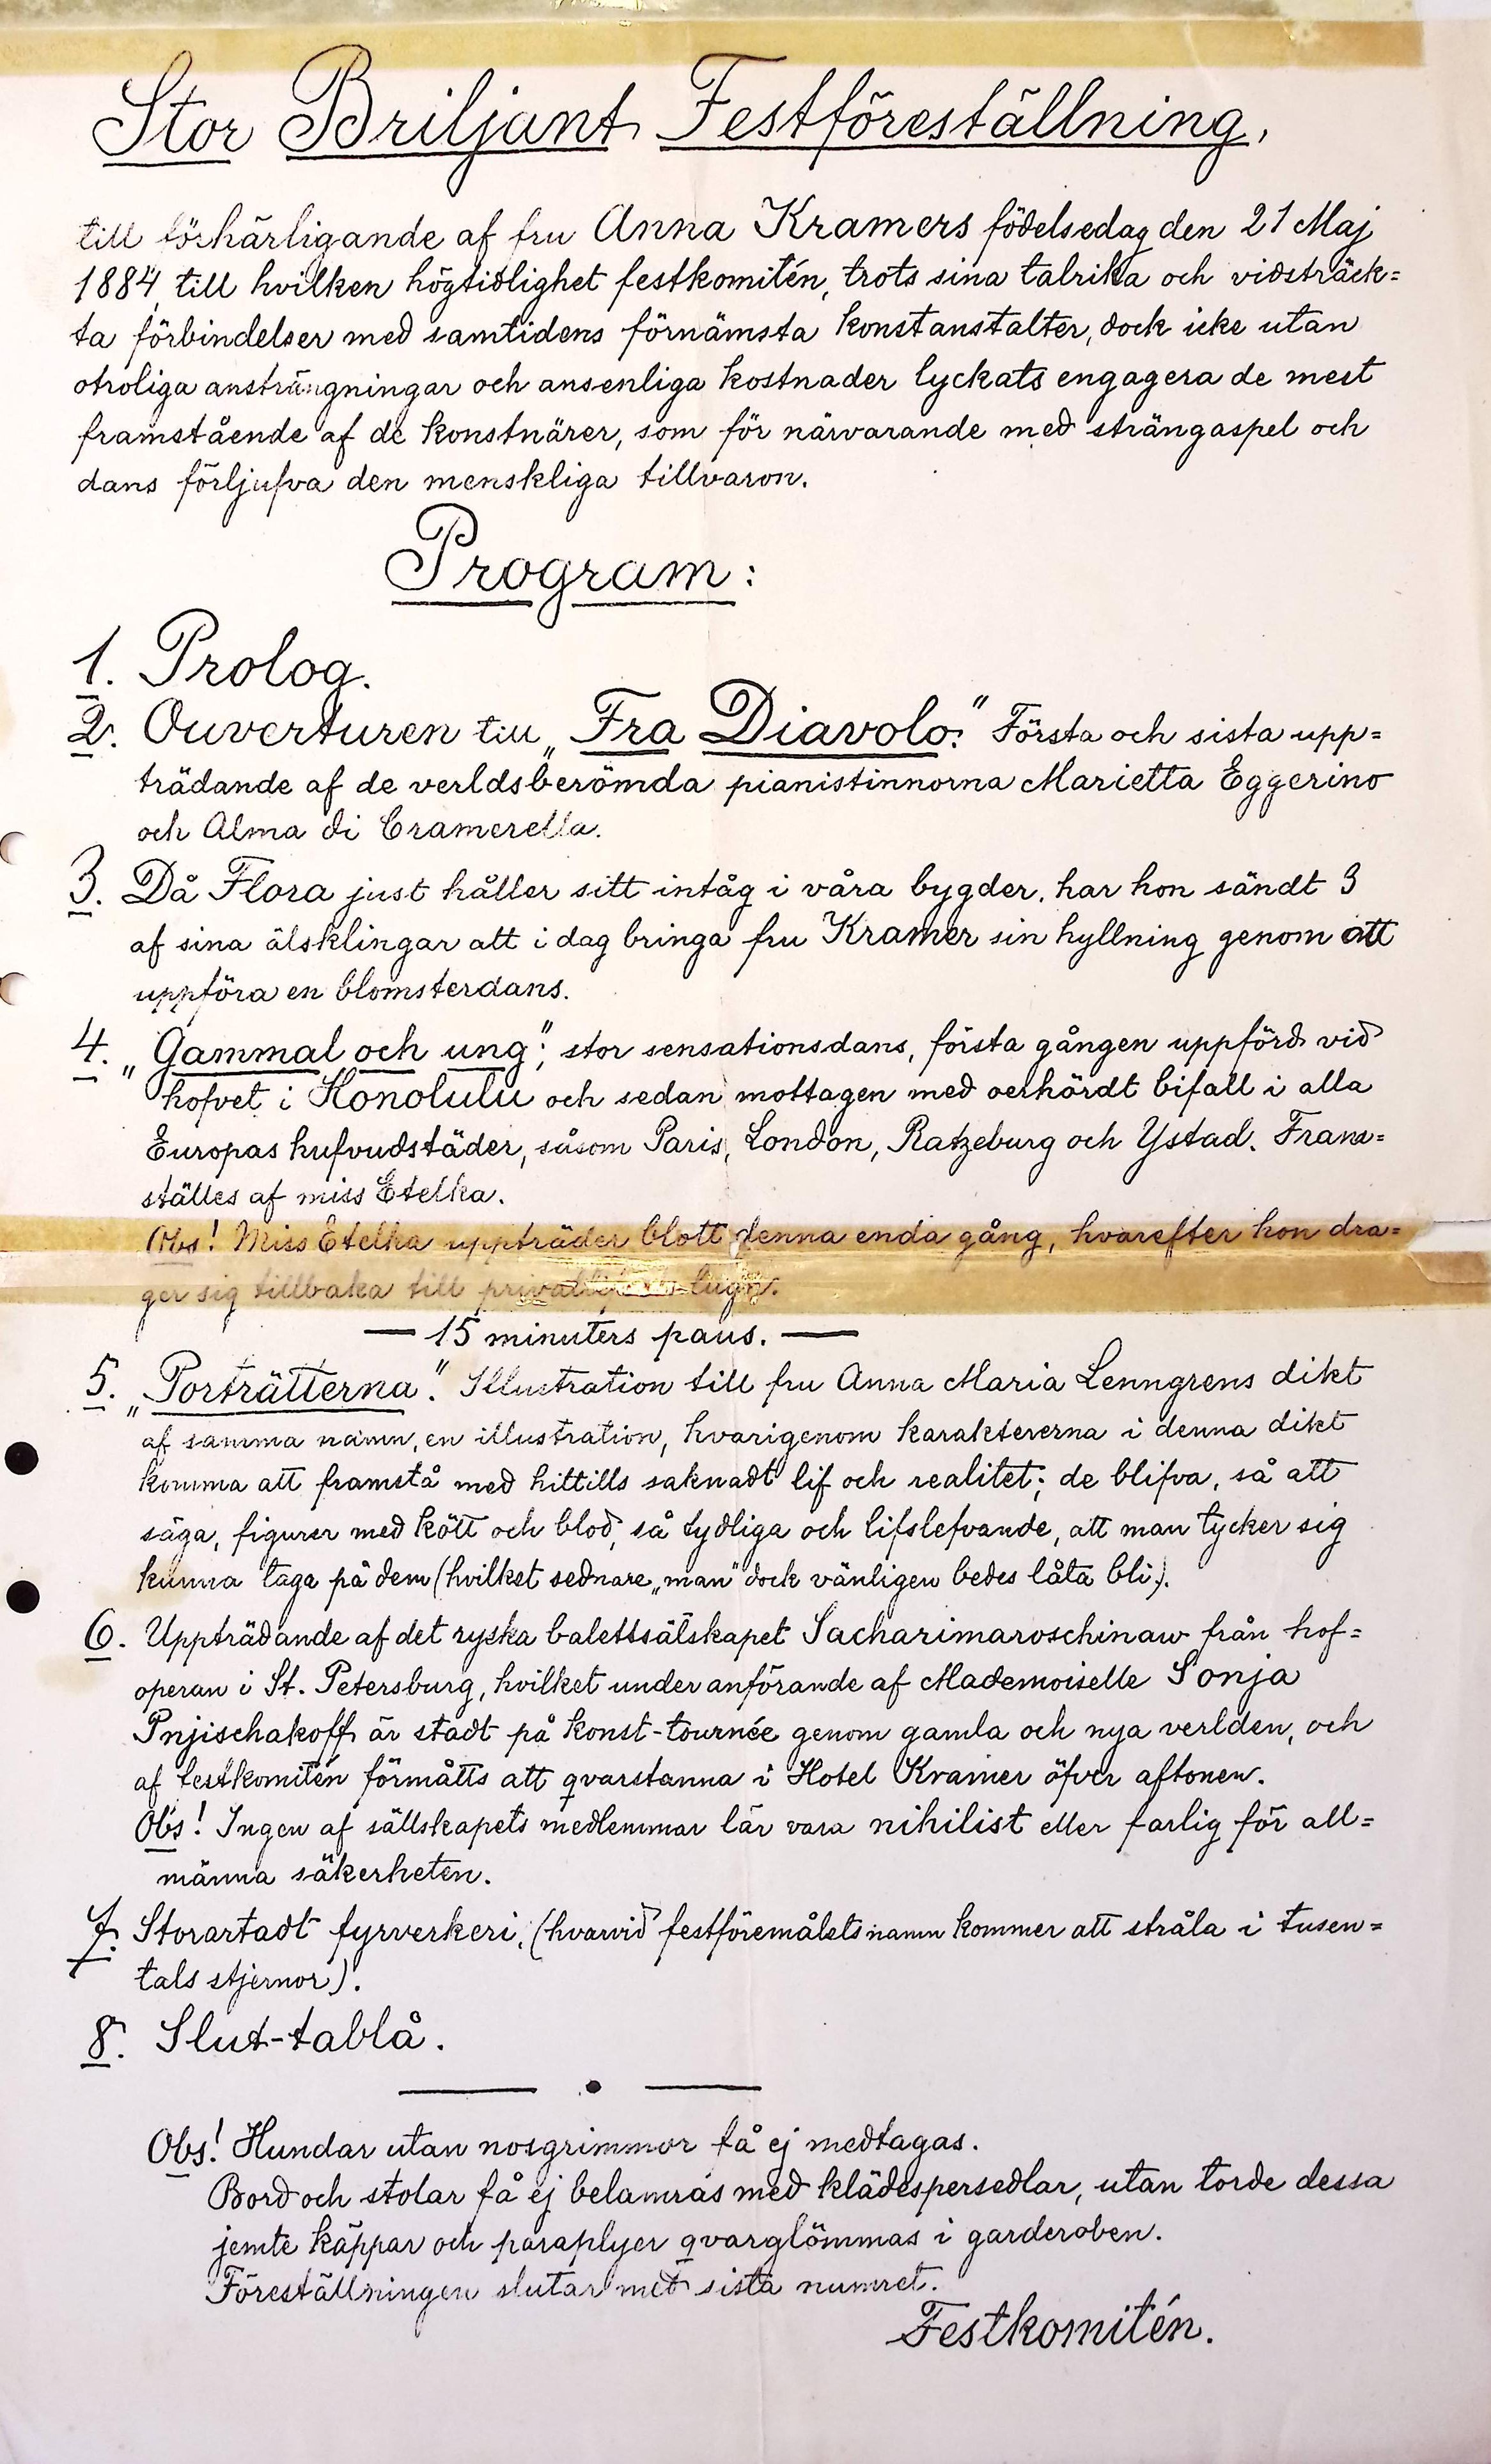 Stor Briljant Festföreställning,
till förhärligande af fru Anna Kramers födelsedag den 21 Maj
1884, till hvilken högtidlighet festkomitén, trots sina talrika och vidsträck=
ta förbindelser med samtidens förnämsta konstanstalter, dock icke utan
otroliga ansträngningar och ansenliga kostnader lyckats engagera de mest
framstående af de konstnärer, som för närvarande med strängaspel och
dans förljufva den menskliga tillvaron.
Program:
1. Prolog.
2. Ouverturen till „Fra Diavolo." Första och sista upp=
trädande af de verldsberömda pianistinnorna Marietta Eggerino
och Alma di Cramerella.
3. Då Flora just håller sitt intåg i våra bygder, har hon sändt 3
af sina älsklingar att i dag bringa fru Kramer sin hyllning genom att
uppföra en blomsterdans.
4. „Gammal och ung"; stor sensationsdans, första gången uppförd vid
hofvet i Honolulu och sedan mottagen med oerhördt bifall i alla
Europas hufvudstäder, såsom Paris, London, Ratzeburg och Ystad. Fram=
ställes af miss Etelka.
Obs! Miss Etelka uppträder blott denna enda gång, hvarefter hon dra=
ger sig tillbaka till lugn.
— 15 minuters paus. —
5. „Porträtterna". Illustration till fru Anna Maria Lenngrens dikt
af samma namn, en illustration, hvarigenom karaktererna i denna dikt
komma att framstå med hittills saknadt lif och realitet; de blifva, så att
säga, figurer med kött och blod, så tydliga och lifslefvande, att man tycker sig
kunna taga på dem (hvilket sednare „man" dock vänligen bedes låta bli).
6. Uppträdande af det ryska balettsälskapet Sacharimaroschinaw från hof=
operan i St. Petersburg, hvilket under anförande af Mademoiselle Sonja
Pnjischakoff är stadt på konst-tournée genom gamla och nya verlden, och
af festkomitén förmåtts att qvarstanna i Hotel Kramer öfver aftonen.
Obs! Ingen af sällskapets medlemmar lär vara nihilist eller farlig för all=
männa säkerheten.
7. Storartadt fyrverkeri, (hvarvid festföremålets namn kommer att stråla i tusen=
tals stjernor).
8. Slut-tablå.
Obs! Hundar utan nosgrimmor få ej medtagas.
Bord och stolar få ej belamras med klädespersedlar, utan torde dessa
jemte käppar och paraplyer qvarglömmas i garderoben.
Föreställningen slutar med sista numret.
Festkomitén.